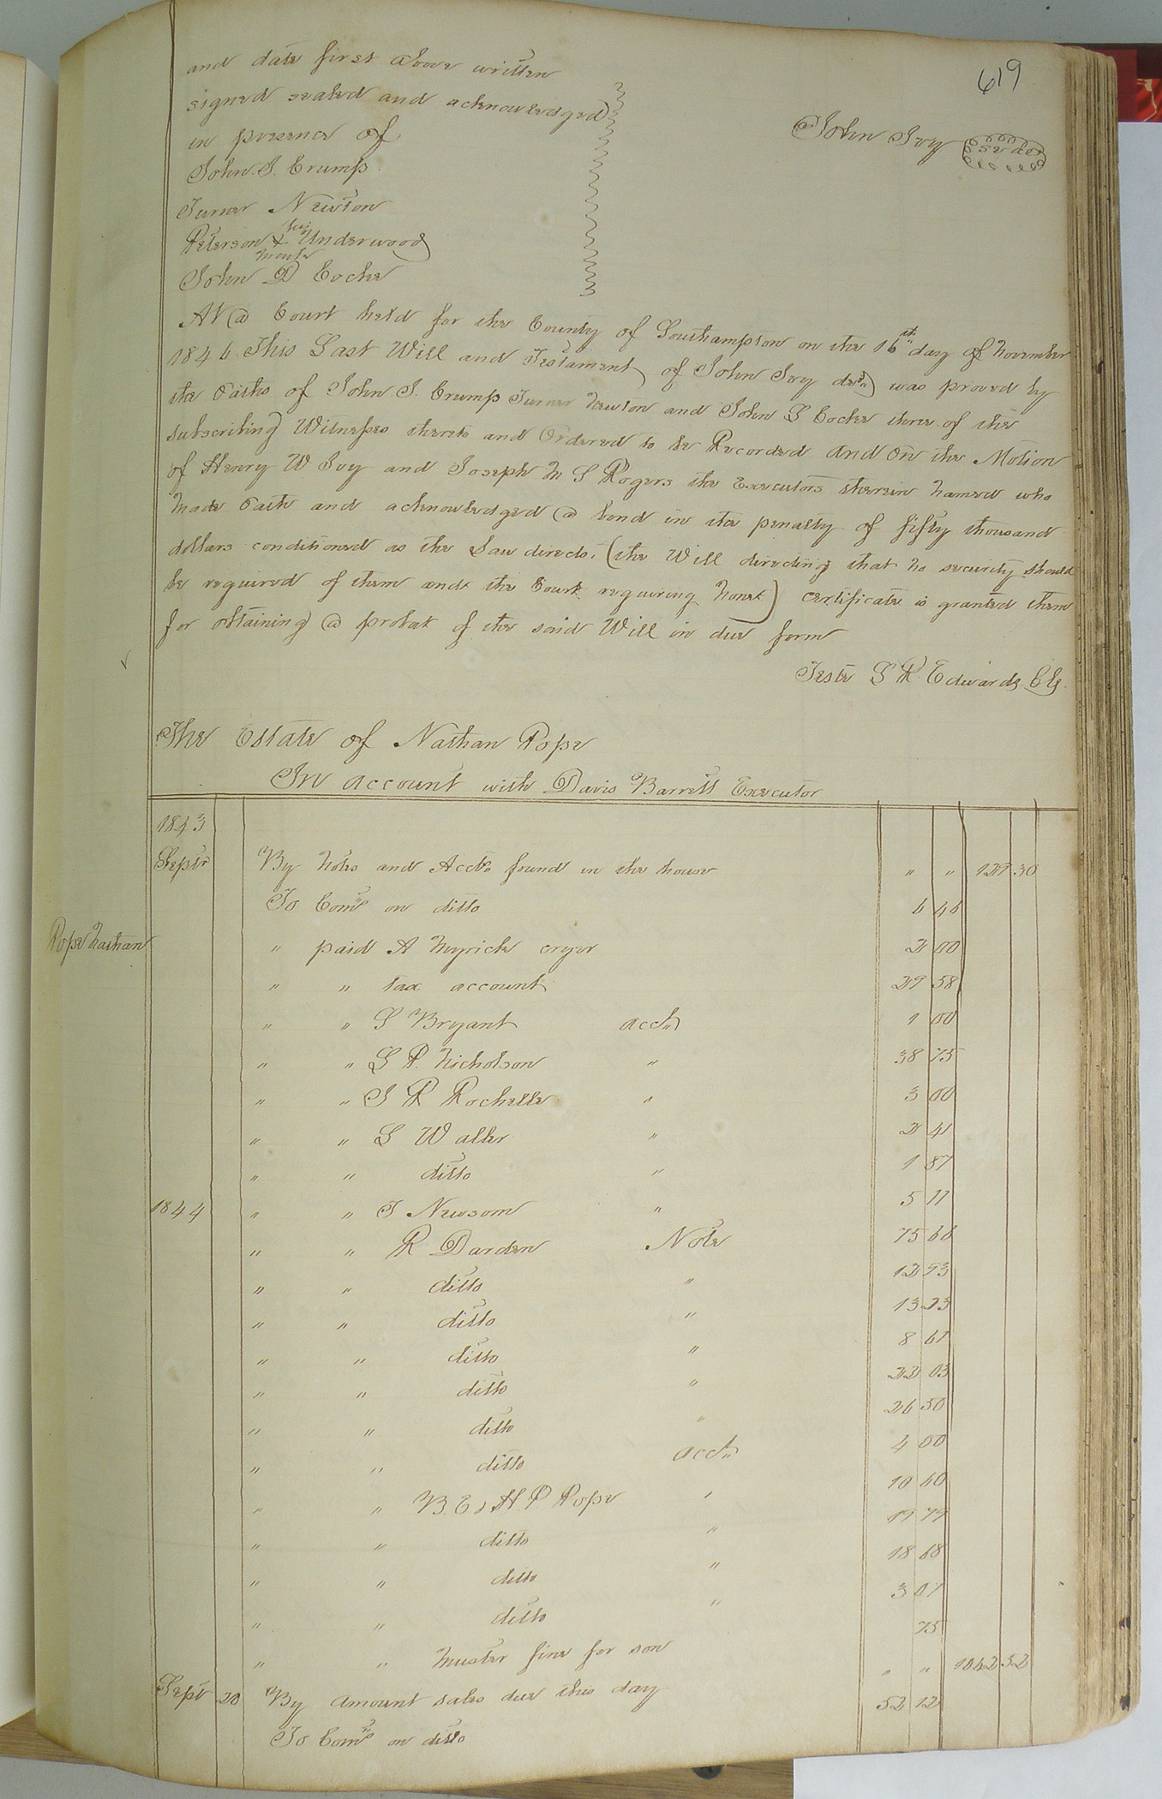 619
and date first above written
signed sealed and acknowledged
in presence of
John Ivy Seal
John. J. Crump
Turner Newton
Peterson his + mark Underwood
John D Cocke
At a Court held for the County of Southampton on the 16th day of November
1846. This Last Will and Testament of John Ivy decd was proved by
the Oaths of John J. Crump Turner Newton and John D Cocke three of the
subscribing Witnesses thereto and Ordered to be Recorded and On the Motion
of Henry W Ivy and Joseph M S Rogers the Executors therein named who
made Oath and acknowledged a bond in the penalty of fifty thousand
dollars conditioned as the Law directs. (the Will directing that no security should
be required of them and the Court requiring none) certificate is granted them
for obtaining a probat of the said Will in due form
Teste L R Edwards Clk.
The Estate of Nathan Pope
In account with Davis Barrett Executor
1843
Septr By notes and Accts found in the house " " 129 30
To Coms on ditto 6 46
Pope Nathan
" paid A Myrick cryer 2 00
" " Tax account 29 58
" " S Bryant acct 1 00
" " L P. Nicholson " 38 75
" " J R Rochelle " 3 00
" " L Waller " 2 41
" " ditto " 1 87
1844 " " J Newsom " 5 11
" " R Darden Note 75 66
" " ditto " 12 93
" " ditto " 13 23
" " ditto " 8 67
" " ditto " 22 03
" " ditto " 26 50
" " ditto acct 4 00
" " B. E & H P Pope " 10 60
" " ditto " 17 79
" " ditto " 18 68
" " ditto " 3 07
" " muster fine for son 75
Septr 20 By amount sales due this day " " 1042 52
To Coms on ditto 52 12